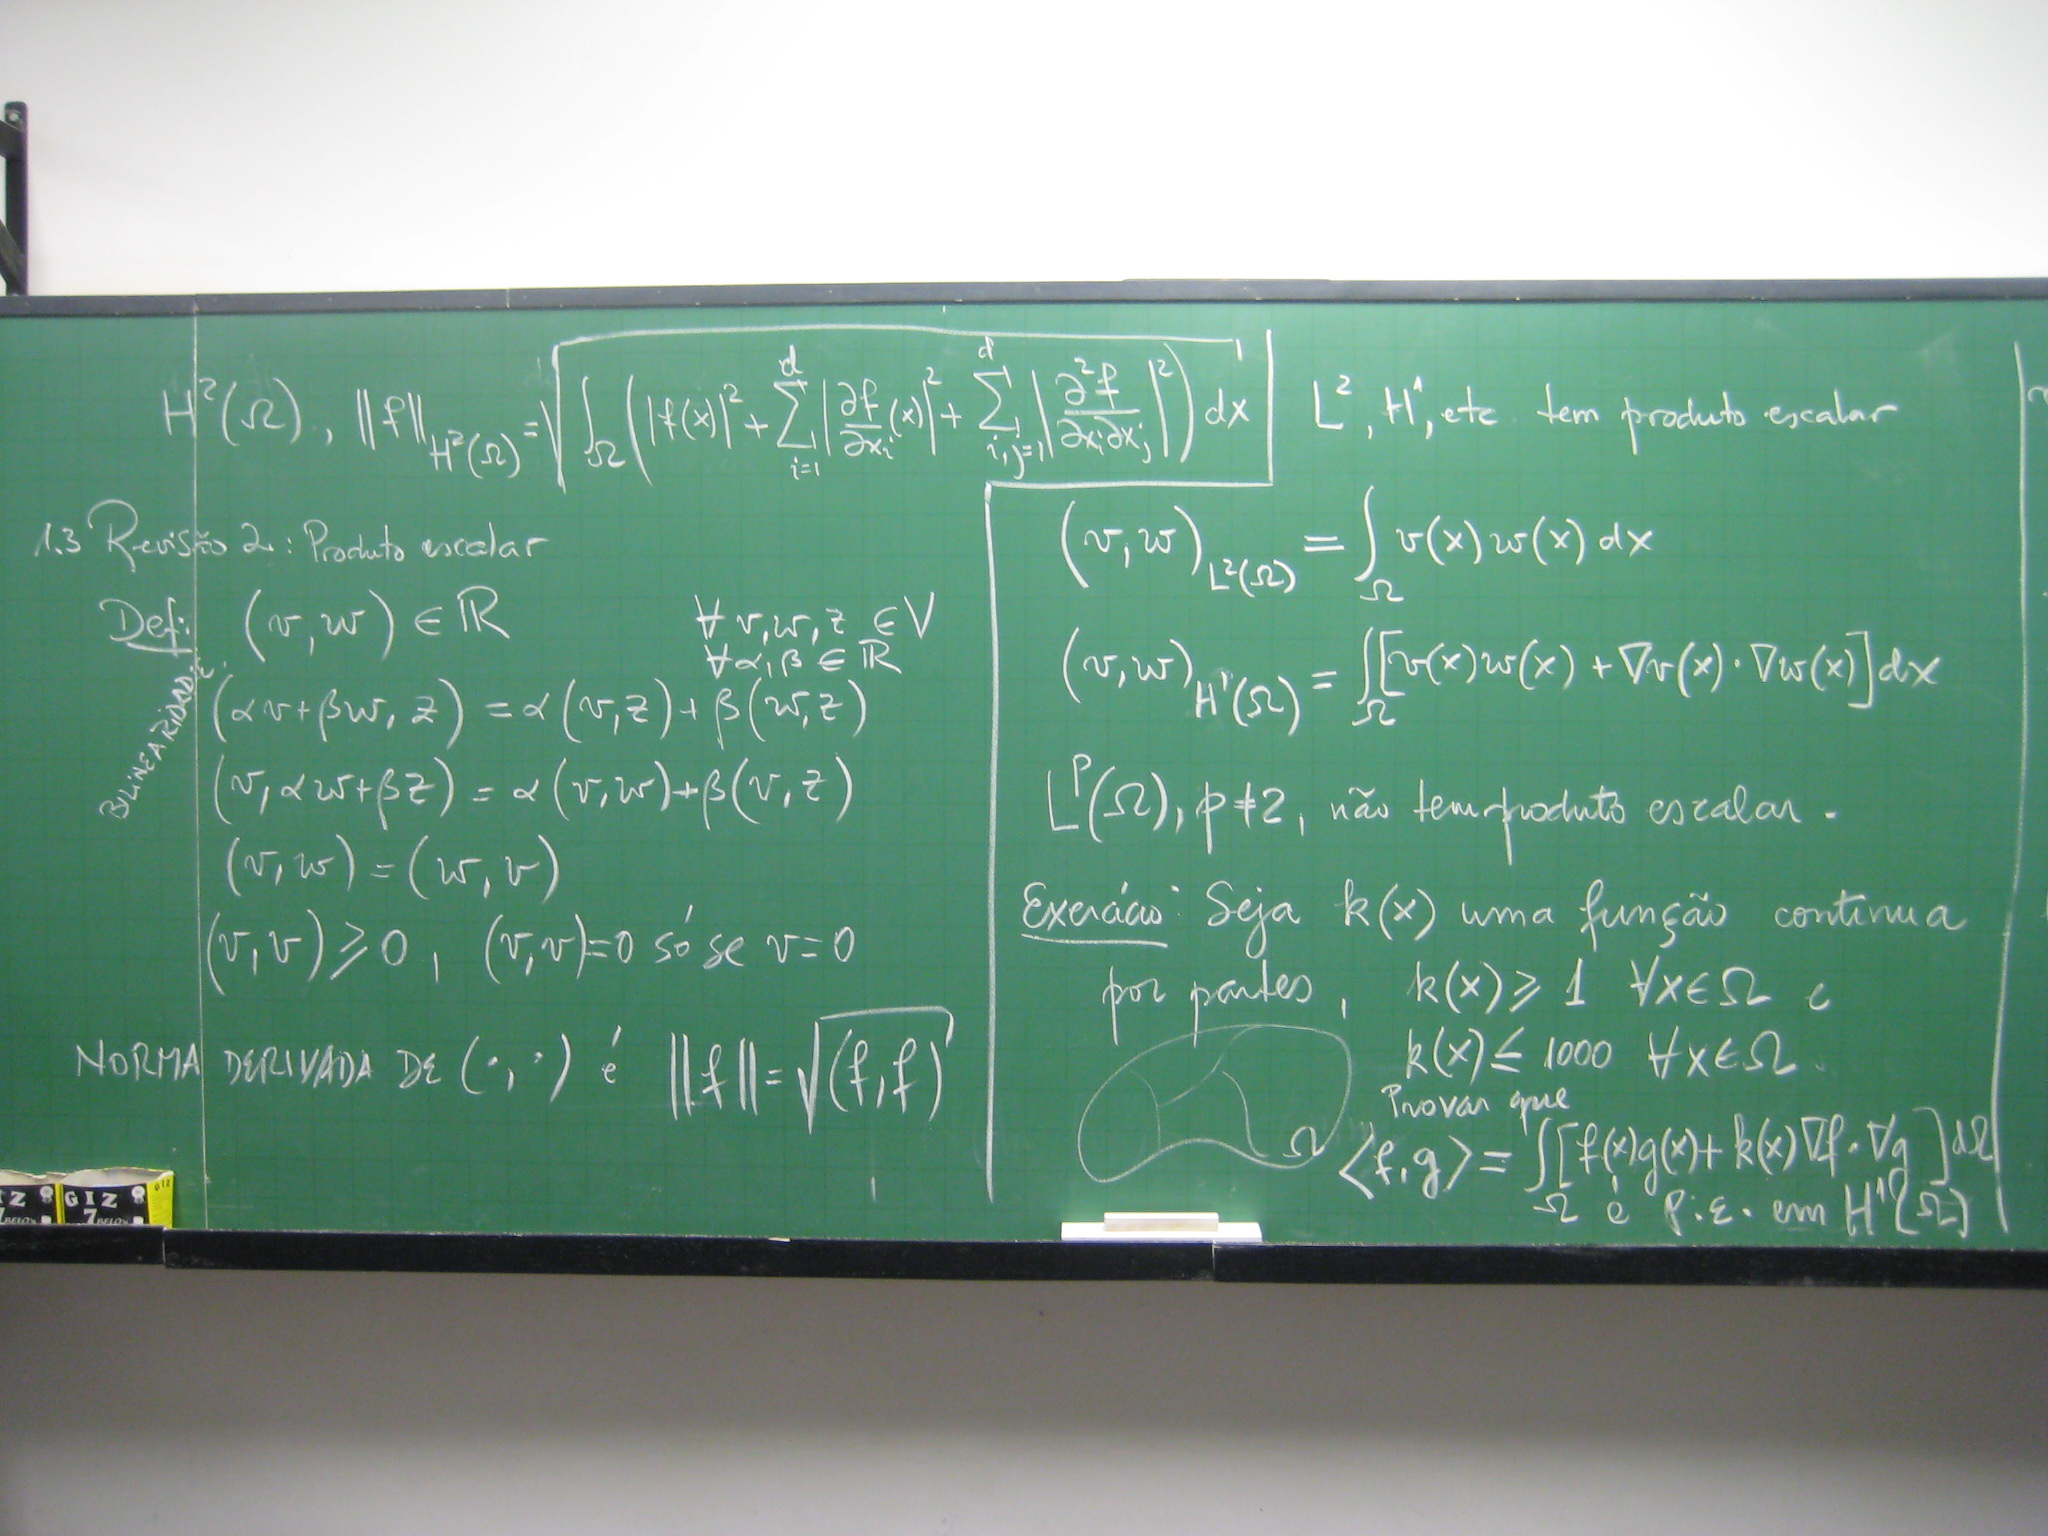 H²(Ω), ‖f‖_{H²(Ω)} = √(∫_Ω (|f(x)|² + Σ_{i=1}^{d} |∂f/∂x_i (x)|² + Σ_{i,j=1}^{d} |∂²f/∂x_i∂x_j|²) dx)
1.3 Revisão 2: Produto escalar
Def: (v,w) ∈ ℝ ∀ v,w,z ∈ V
∀ α,β ∈ ℝ
BILINEARIDADE
(αv+βw, z) = α(v,z) + β(w,z)
(v, αw+βz) = α(v,w) + β(v,z)
(v,w) = (w,v)
(v,v) ⩾ 0, (v,v)=0 só se v=0
NORMA DERIVADA DE (·,·) é ‖f‖ = √(f,f)
L², H¹, etc. tem produto escalar
(v,w)_{L²(Ω)} = ∫_Ω v(x) w(x) dx
(v,w)_{H¹(Ω)} = ∫_Ω [v(x)w(x) + ∇v(x)·∇w(x)] dx
L^p(Ω), p≠2, não tem produto escalar.
Exercício: Seja k(x) uma função continua
por partes, k(x) ⩾ 1 ∀x∈Ω e
k(x) ≤ 1000 ∀x∈Ω.
Provar que
Ω
⟨f,g⟩ = ∫_Ω [f(x)g(x) + k(x)∇f·∇g] dΩ
é P.E. em H¹(Ω)
GIZ
GIZ